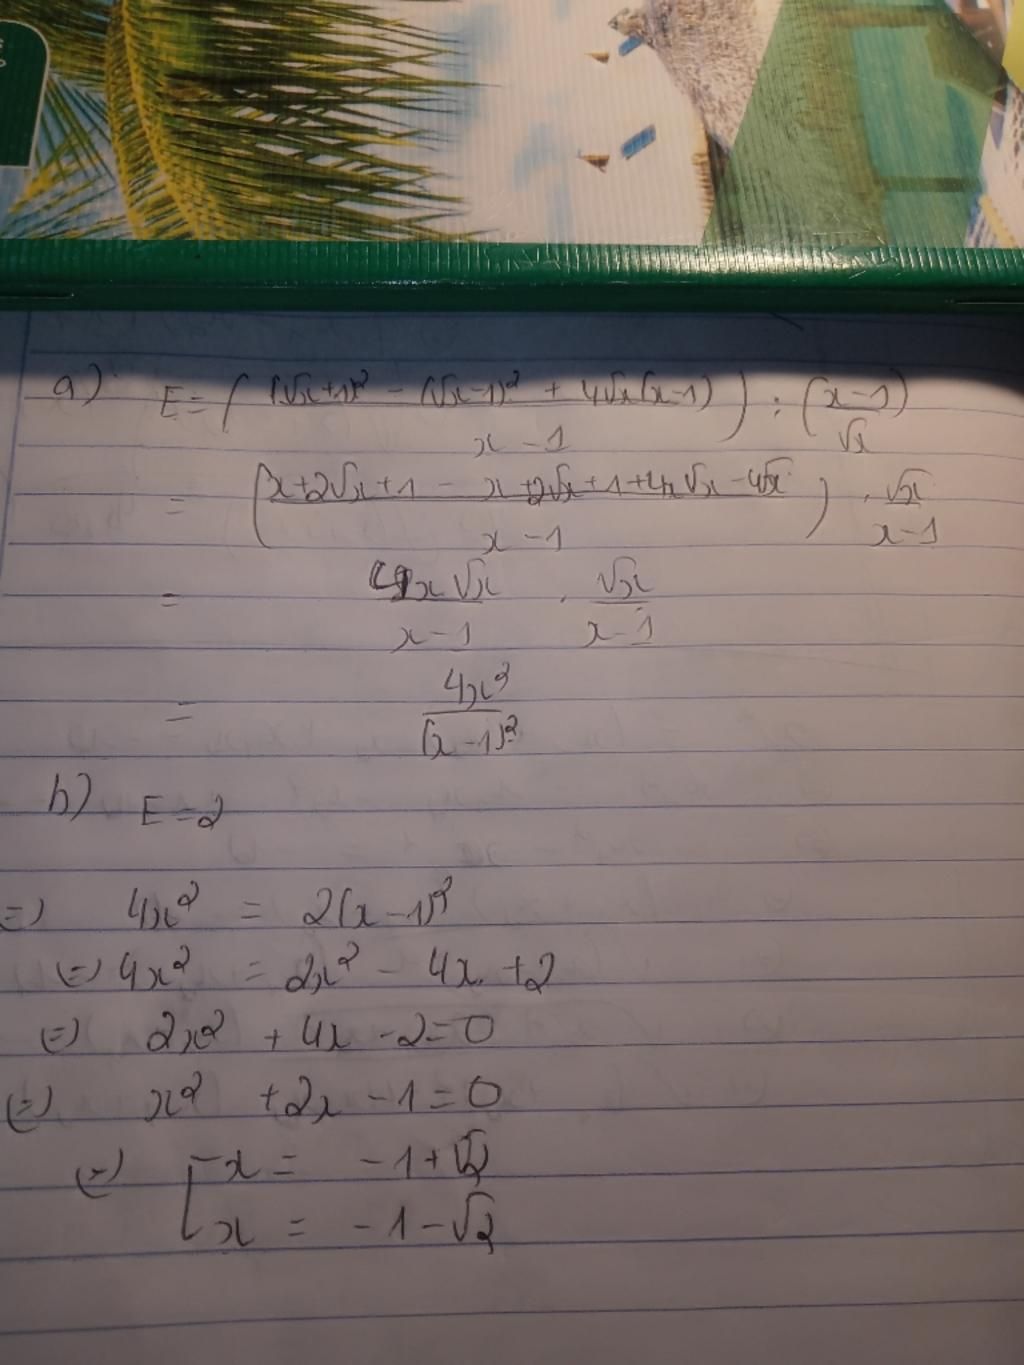 a) E = ( ((√x+1)² - (√x-1)² + 4√x(x-1)) / (x-1) ) : ((x-1)/√x)
= ( (x+2√x+1 - x+2√x+1+4x√x-4√x) / (x-1) ) . √x/(x-1)
= 4x√x/(x-1) . √x/(x-1)
= 4x²/(x-1)²
b) E=2
=) 4x² = 2(x-1)²
(=) 4x² = 2x² - 4x +2
(=) 2x² + 4x -2=0
(=) x² +2x -1=0
(=) [ x = -1+√2
x = -1-√2